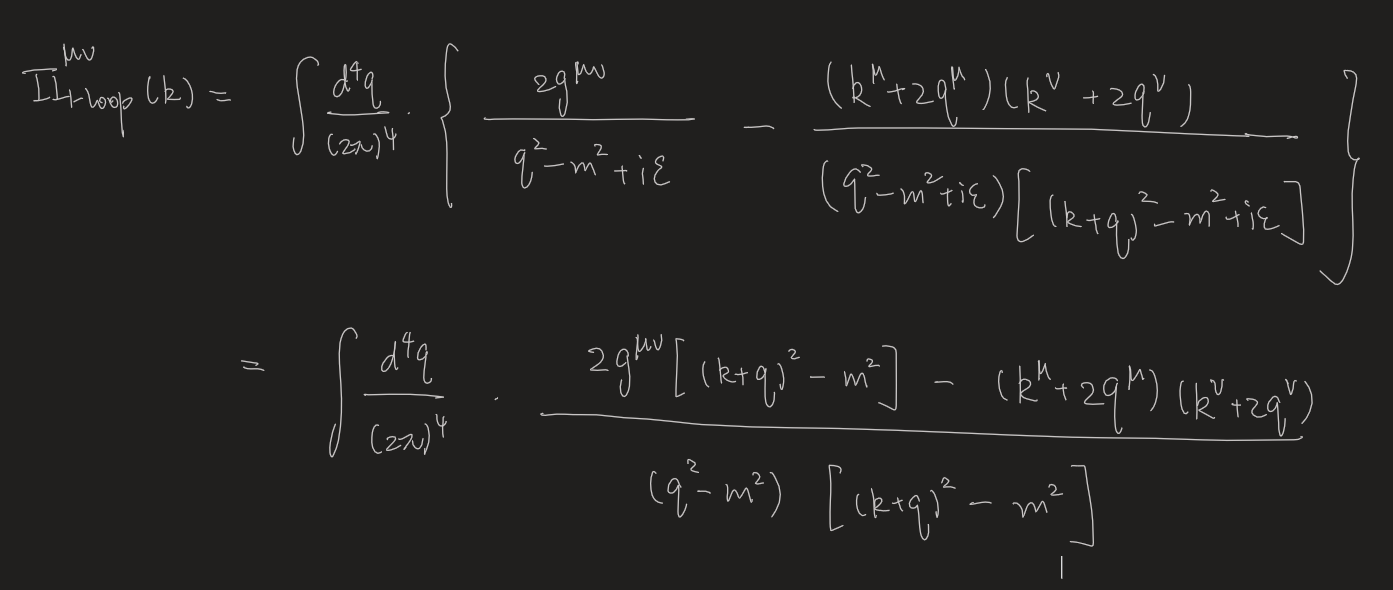 Π^{μν}_{1-loop}(k) = ∫ d⁴q/(2π)⁴ · { 2g^{μν}/(q²-m²+iε) - (k^μ+2q^μ)(k^ν+2q^ν)/((q²-m²+iε)[(k+q)²-m²+iε]) }
= ∫ d⁴q/(2π)⁴ · (2g^{μν}[(k+q)²-m²] - (k^μ+2q^μ)(k^ν+2q^ν))/((q²-m²)[(k+q)²-m²])